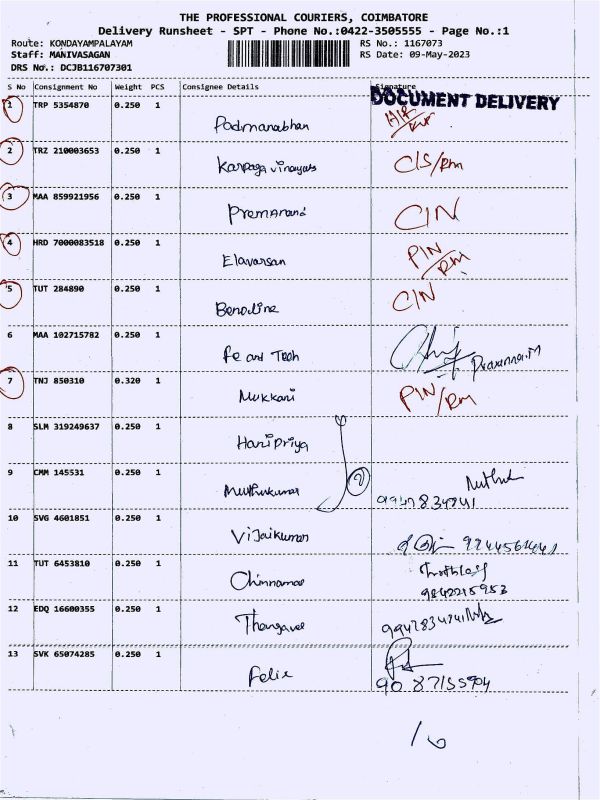 THE PROFESSIONAL COURIERS, COIMBATORE
Delivery Runsheet - SPT - Phone No.:0422-3505555 - Page No.:1
Route: KONDAYAMPALAYAM RS No.: 1167073
Staff: MANIVASAGAN RS Date: 09-May-2023
DRS No.: DCJB116707301
S No Consignment No Weight PCS Consignee Details Signature
DOCUMENT DELIVERY
1 TRP 5354870 0.250 1
Padmanabhan
2 TRZ 210003653 0.250 1
Karpaga vinayats CIS/Rm
3 MAA 859921956 0.250 1
Premanand CIN
4 HRD 7000083518 0.250 1
Elavarsan PIN/RM
5 TUT 284890 0.250 1
Benoline CIN
6 MAA 102715782 0.250 1
Fe and Tech Prasanna.M
7 TNJ 850310 0.320 1
Mukkani PIN/RM
8 SLM 319249637 0.250 1
Haripriya
9 CMM 145531 0.250 1
Muthukumar 9947834741
10 SVG 4601851 0.250 1
Vijaikumar
11 TUT 6453810 0.250 1
Chinnamal
9842215953
12 EDQ 16600355 0.250 1
Thangavel
13 SVK 65074285 0.250 1
Felix 90 87155904